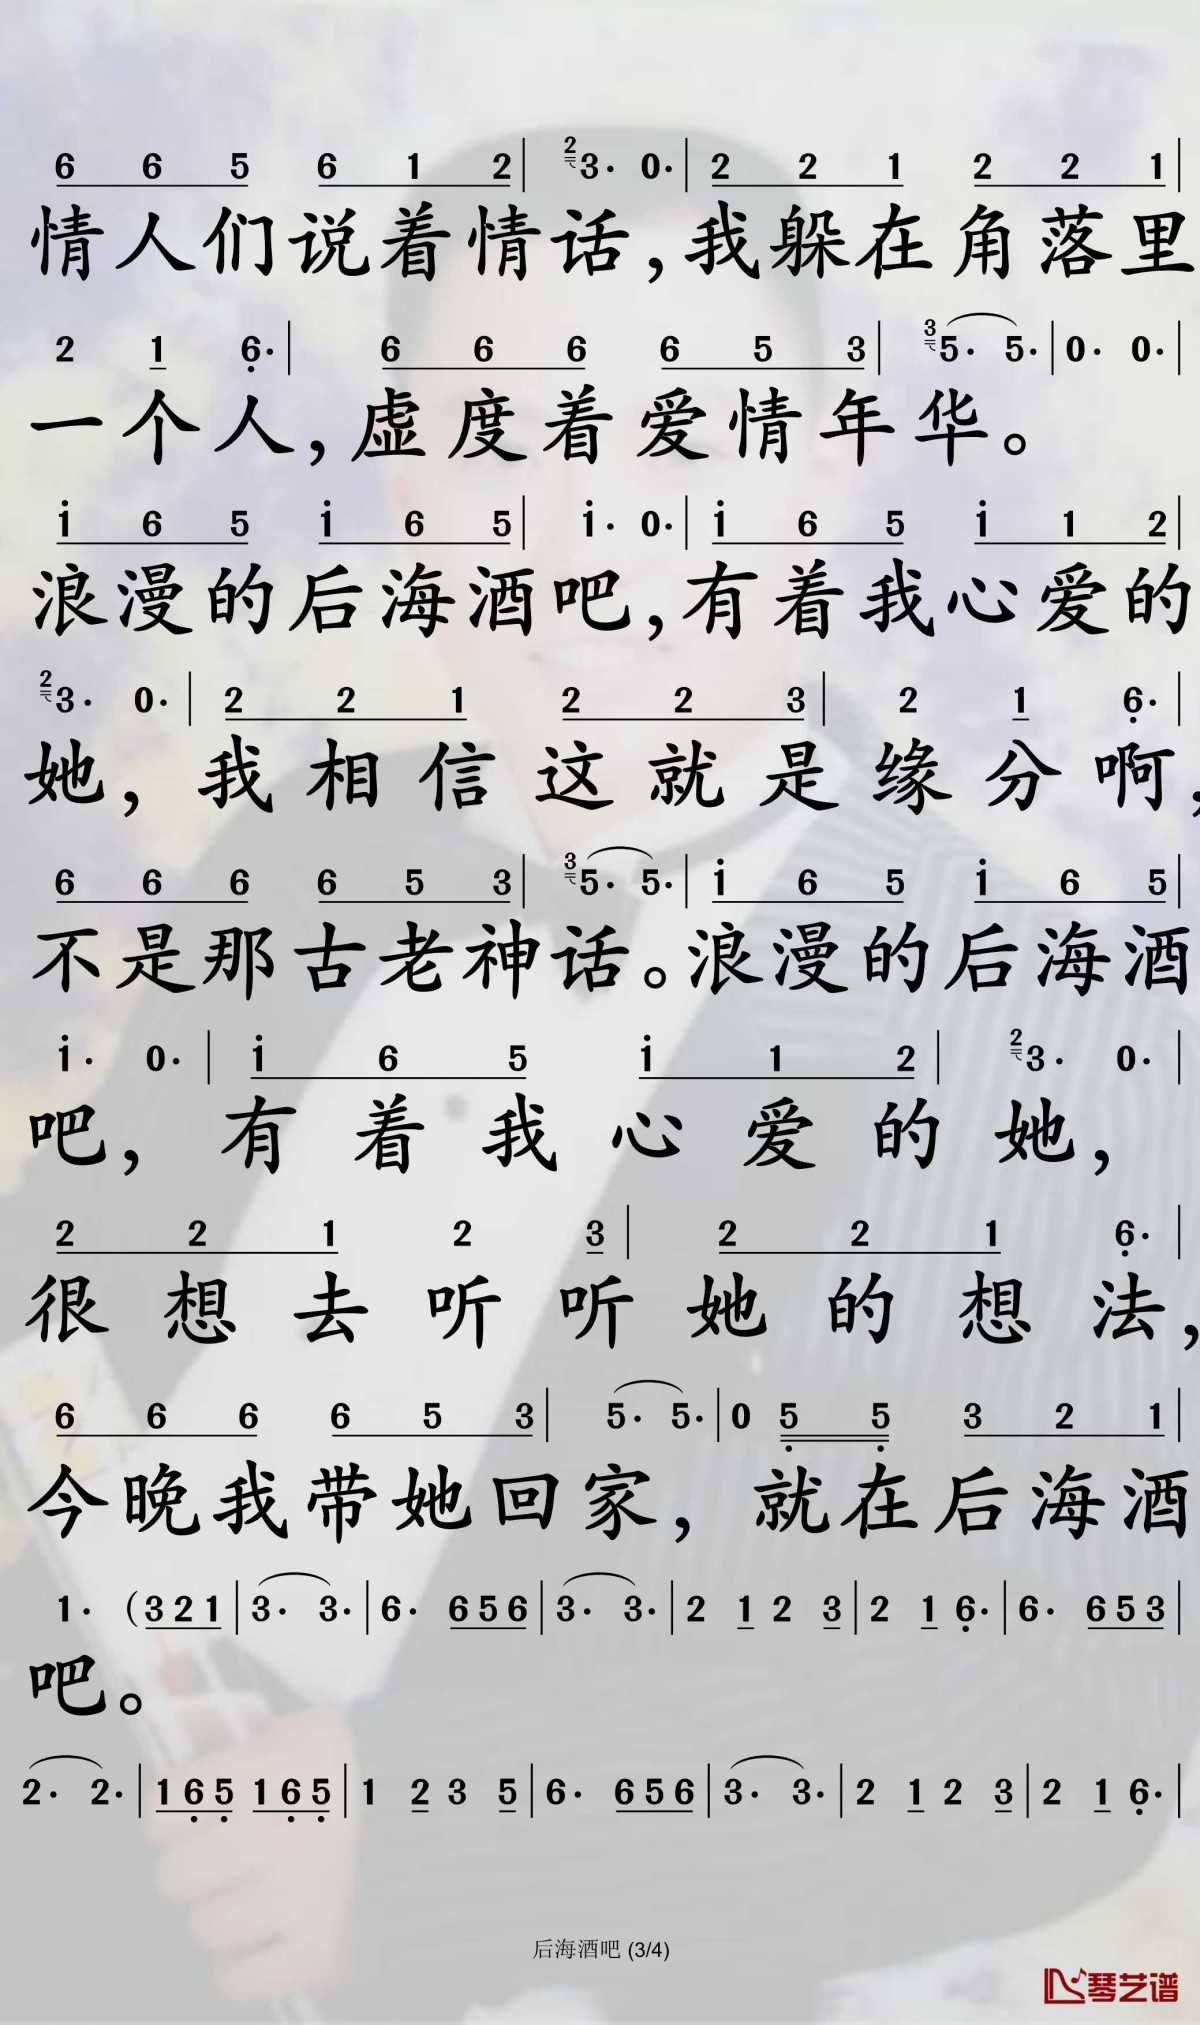 6 6 5 6 1 2 | 2 3· 0· | 2 2 1 2 2 1 |
情人们说着情话,我躲在角落里
2 1 6· | 6 6 6 6 5 3 | 3 5· 5· | 0· 0· |
一个人,虚度着爱情年华。
i 6 5 i 6 5 | i· 0· | i 6 5 i 1 2 |
浪漫的后海酒吧,有着我心爱的
2 3· 0· | 2 2 1 2 2 3 | 2 1 6· |
她,我相信这就是缘分啊,
6 6 6 6 5 3 | 3 5· 5· | i 6 5 i 6 5
不是那古老神话。浪漫的后海酒
i· 0· | i 6 5 i 1 2 | 2 3· 0· |
吧,有着我心爱的她,
2 2 1 2 3 | 2 2 1 6· |
很想去听听她的想法,
6 6 6 6 5 3 | 5· 5· | 0 5 5 3 2 1 |
今晚我带她回家,就在后海酒
1· (3 2 1 | 3· 3· | 6· 6 5 6 | 3· 3· | 2 1 2 3 | 2 1 6· | 6· 6 5 3 |
吧。
2· 2· | 1 6 5 1 6 5 | 1 2 3 5 | 6· 6 5 6 | 3· 3· | 2 1 2 3 | 2 1 6· |
后海酒吧 (3/4)
琴艺谱